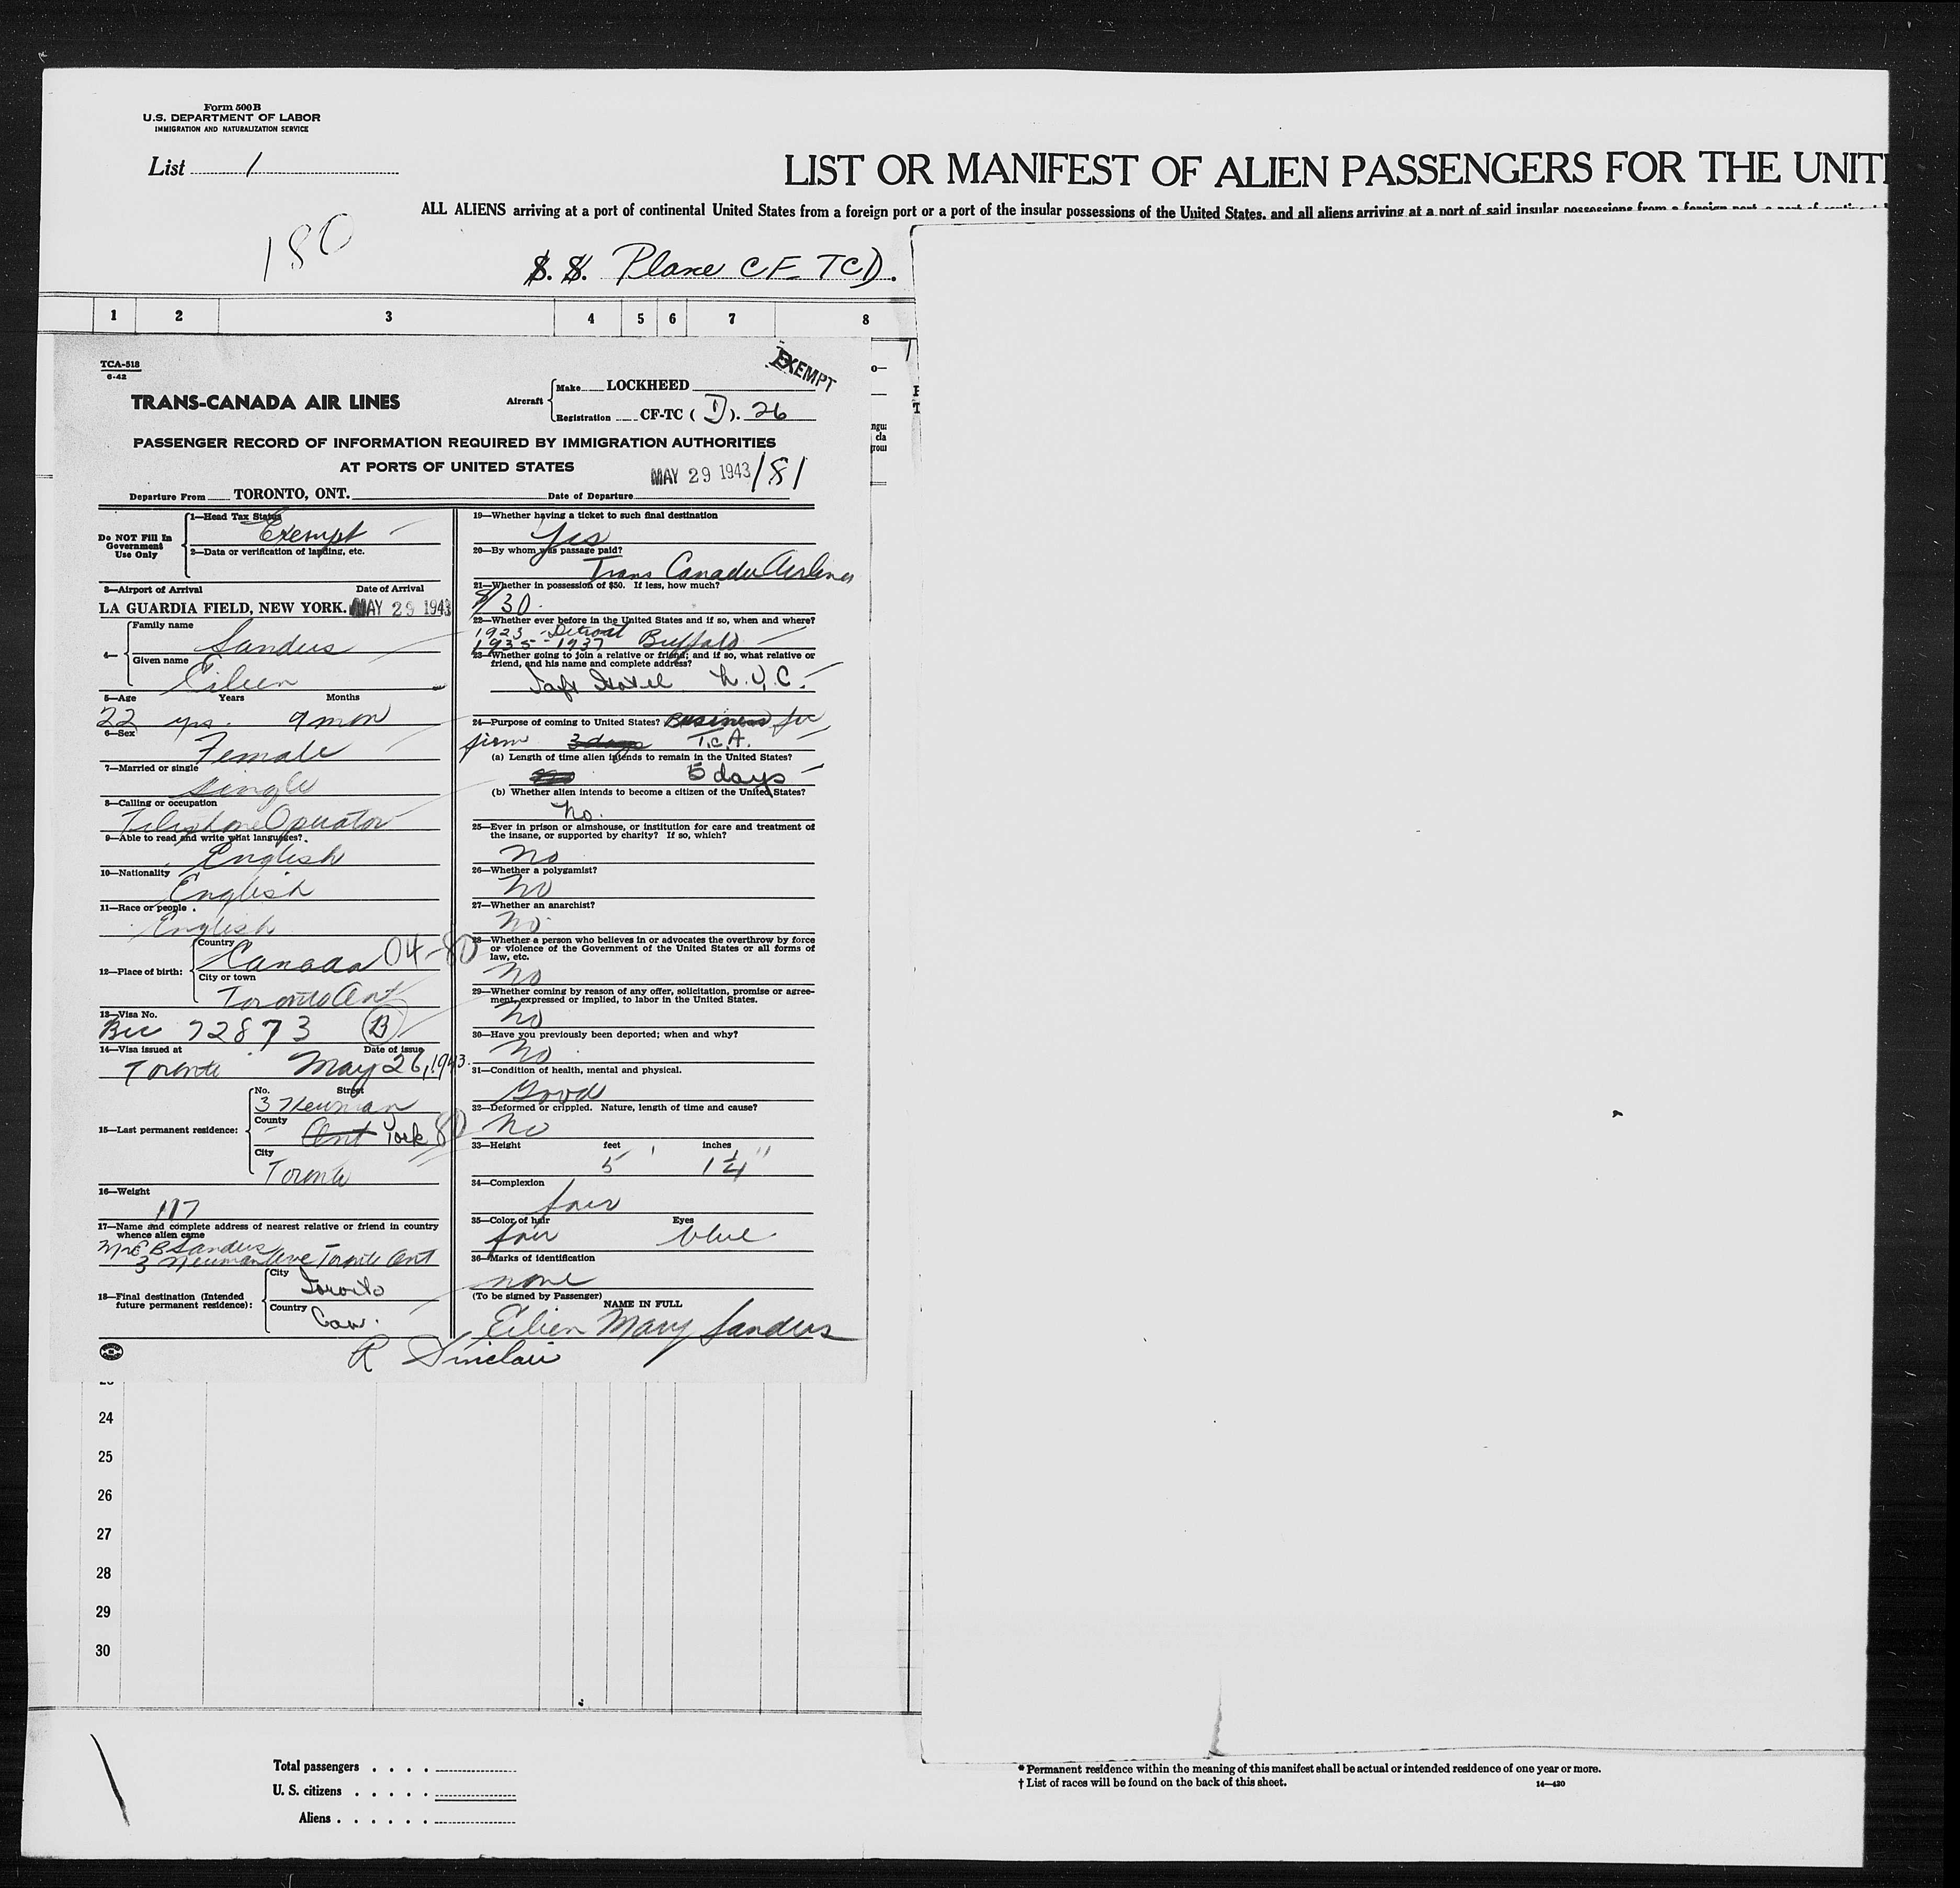 Form 500 B
U.S. DEPARTMENT OF LABOR
IMMIGRATION AND NATURALIZATION SERVICE
List 1
LIST OR MANIFEST OF ALIEN PASSENGERS FOR THE UNIT
ALL ALIENS arriving at a port of continental United States from a foreign port or a port of the insular possessions of the United States, and all aliens arriving at a port of said insular possessions from a foreign port, a port of
180
S. S. Plane CF TCD.
1 2 3 4 5 6 7 8
TCA-518
6-42
EXEMPT
TRANS-CANADA AIR LINES
Aircraft
Make LOCKHEED
Registration CF-TC ( D ). 26
PASSENGER RECORD OF INFORMATION REQUIRED BY IMMIGRATION AUTHORITIES
AT PORTS OF UNITED STATES
MAY 29 1943 181
Departure From TORONTO, ONT. Date of Departure
Do NOT Fill In Government Use Only
1—Head Tax Status
Exempt
2—Data or verification of landing, etc.
3—Airport of Arrival Date of Arrival
LA GUARDIA FIELD, NEW YORK. MAY 29 1943
4—
Family name
Sanders
Given name
Eileen
5—Age Years Months
22 yrs. 9 mon
6—Sex
Female
7—Married or single
single
8—Calling or occupation
Telephone Operator
9—Able to read and write what languages?
English
10—Nationality
English
11—Race or people
English
12—Place of birth:
Country
Canada 04-80
City or town
Toronto Ont
13—Visa No.
Bcc 72873 B
14—Visa issued at Date of issue
Toronto May 26, 1943.
15—Last permanent residence:
No. Street
3 Neuman
County
Ont York 80
City
Toronto
16—Weight
117
17—Name and complete address of nearest relative or friend in country
whence alien came
Mrs E B Sanders
3 Neuman Ave Toronto Ont
18—Final destination (Intended
future permanent residence):
City
Toronto
Country
Can.
19—Whether having a ticket to such final destination
Yes
20—By whom was passage paid?
Trans Canada Airlines
21—Whether in possession of $50. If less, how much?
$30.
22—Whether ever before in the United States and if so, when and where?
1923 - Detroit
1935 - 1937 Buffalo
23—Whether going to join a relative or friend; and if so, what relative or
friend, and his name and complete address?
Taft Hotel N.Y.C.
24—Purpose of coming to United States? Business for
firm 3 days T.C.A.
(a) Length of time alien intends to remain in the United States?
5 days
(b) Whether alien intends to become a citizen of the United States?
No.
25—Ever in prison or almshouse, or institution for care and treatment of
the insane, or supported by charity? If so, which?
No
26—Whether a polygamist?
No
27—Whether an anarchist?
No
28—Whether a person who believes in or advocates the overthrow by force
or violence of the Government of the United States or all forms of
law, etc.
No
29—Whether coming by reason of any offer, solicitation, promise or agree-
ment, expressed or implied, to labor in the United States.
No
30—Have you previously been deported; when and why?
No
31—Condition of health, mental and physical.
Good
32—Deformed or crippled. Nature, length of time and cause?
No
33—Height feet inches
5 ' 1 1/4 "
34—Complexion
fair
35—Color of hair Eyes
fair blue
36—Marks of identification
none
(To be signed by Passenger)
NAME IN FULL
Eileen Mary Sanders
R Sinclair
24
25
26
27
28
29
30
Total passengers
U. S. citizens
Aliens
* Permanent residence within the meaning of this manifest shall be actual or intended residence of one year or more.
† List of races will be found on the back of this sheet.
14—430